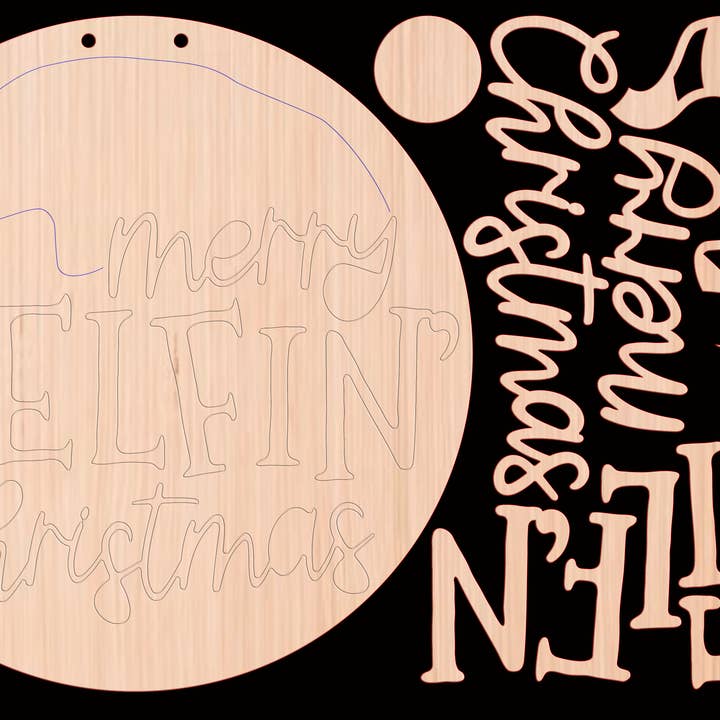 merry
ELFIN'
hristmas
christmas
merry